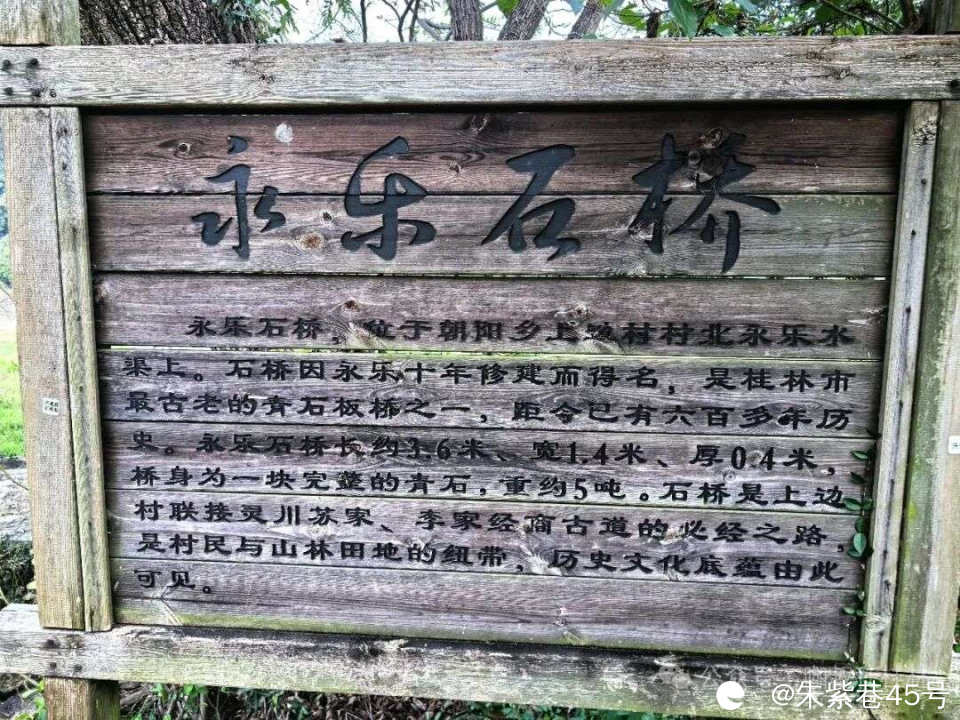 永乐石桥
永乐石桥，位于朝阳乡上边村村北永乐水
渠上。石桥因永乐十年修建而得名，是桂林市
最古老的青石板桥之一，距今已有六百多年历
史。永乐石桥长约3.6米、宽1.4米、厚0.4米，
桥身为一块完整的青石，重约5吨。石桥是上边
村联接灵川苏家、李家经商古道的必经之路，
是村民与山林田地的纽带，历史文化底蕴由此
可见。
@朱紫巷45号